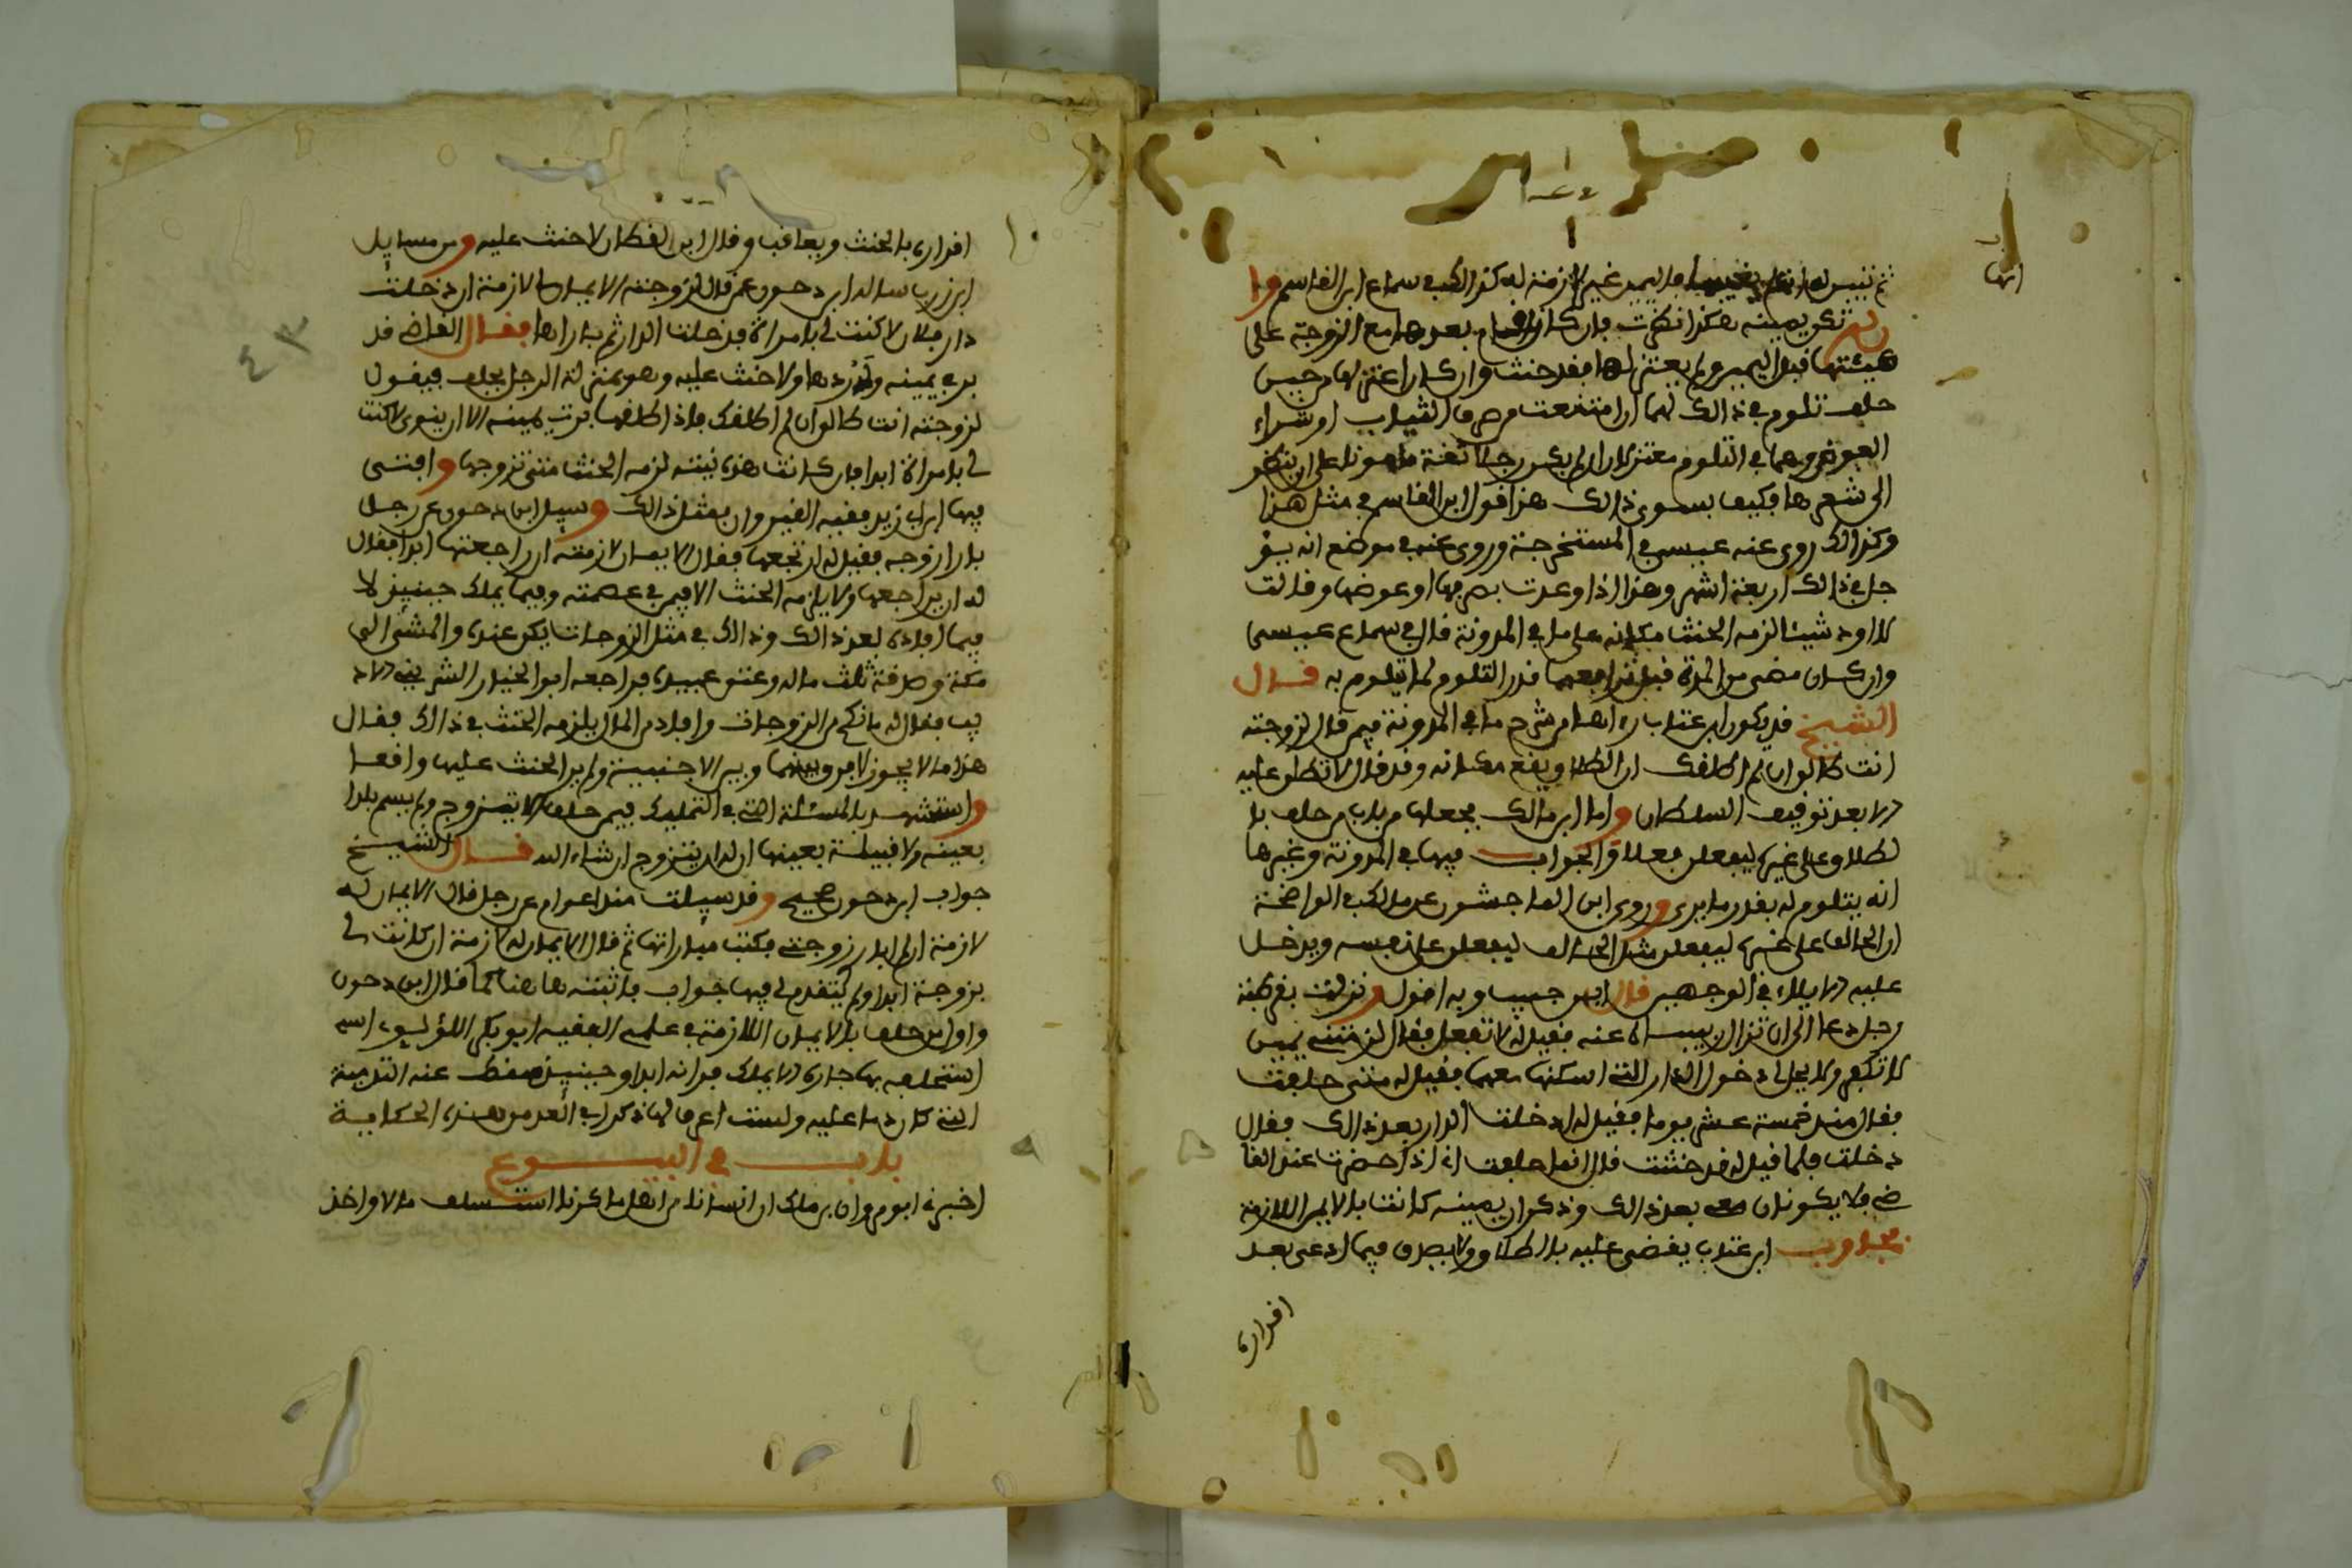 ثم تبين له انها بغيبها فاليمين غير لازمة له كذا لكب سماع ابن القاسم وا
ن لم تكن يمينه هكذا نظرت فان كان بعدها مع الزوجة على
هيئتها قبل اليمين ولم يعتزلها فقد حنث وان كان اعتزلها من حين
حلف تلوم في ذالك لهما ان امتنعت من صرف الثياب او شراء
العوض وهما في التلوم معتزلان ان لم يكن رجلا ثقة مامونا على ان ينظر
الى شعرها فكيف بسوى ذالك هذا قول ابن القاسم في مثل هذا
وكذالك روى عنه عيسى في المستخرجة وروى عنه في موضع انه يؤ
جل في ذالك اربعة اشهر وهذا اذا وعدت بصرفها او عوضها وقالت
لا اود شيئا لزمه الحنث مكانه على ما في المدونة قال في سماع عيسى
وان كان مضى من المدة قبل ترافعهما قدر التلوم لما تلوم به قال
الشيخ قد يكون ابن عتاب رءاها من شرح ما في المدونة فيمن قال لزوجته
انت طالق ان لم اطلقك ان الطلاق يقع مكانه وقد قال لا تطلق عليه
الا بعد توقيف السلطان واما ابن مالك فجعلها من باب من حلف با
لطلاق على غيره ليفعلن فعلا والجواب فيها في المدونة وغيرها
انه يتلوم له بقدر ما يرى وروى ابن الماجشون عن مالك في الواضحة
ان الحالف على غيره ليفعلن مثل الحالف ليفعلن على نفسه ويدخل
عليه الايلاء في الوجهين قال ابن حبيب وبه اقول ونزلت بقرطبة
رجل دعا الى ان تزال ربيبته عنه فقيل له لا تفعل فقال لزمتني يمين
لا تكفر ولا يحل لي دخول الدار التي اسكنها معها فقيل له متى حلفت
فقال منذ خمسة عشر يوما فقيل له ادخلت الدار بعد ذالك فقال
دخلت فلما قيل له قد حنثت قال انما حلفت اني اذا حضرت عند القا
ضي فلا يكونان معي بعد ذالك وذكر ان يمينه كانت بالايمن اللازمة
فجاوب ابن عتاب يقضى عليه بالطلاق ولا يصدق فيما ادعى بعد
اقراره
اقراره بالحنث ويعاقب وقال ابن القطان لا حنث عليه ومن مسايل
ابن زرب سالت ابن دحون عمن قال لزوجته الايمان لازمة ان دخلت
دار فلان لا كنت لي بامراة فدخلت الدار ثم باراها فقال القاضي قد
بر في يمينه وله ردها ولا حنث عليه وهو بمنزلة الرجل يحلف فيقول
لزوجته انت طالق ان لم اطلقك فاذا طلقها برت يمينه الا ان ينوي لا كنت
لي بامراة ابدا فان كانت هذه نيته لزمه الحنث متى تزوجها وافتى
فيها ابن ابي زيد فقيه القيروان بمثل ذالك وسيل ابن دحون عن رجل
بارا زوجه فقيل له ارتجعها فقال الايمان لازمته ان راجعتها ابدا فقال
له ان يراجعها ولا يلزمه الحنث الا فيمن في عصمته وفيما يملك حينئذ لا
فيما افاده بعد ذالك وذالك في مثل الزوجات يكن عنده والمشي الى
مكة وصدقة ثلث ماله وعتق عبيده فراجعه ابو الخيار الشرفي الاد
يب فقال له ما نكح من الزوجات وافاد من المال يلزمه الحنث في ذالك فقال
هذا ما لا يجوز لا فرق بينهما وبين الاجنبية ولم ير الحنث عليها واقعا
واستشهد بالمسئلة التي في التمليك فيمن حلف الا يتزوج ولم يسم بلدا
بعينه ولا قبيلة بعينها ان له ان يتزوج ان شاء الله قال الشيخ
جواب ابن دحون صحيح وقد سيلت منذ اعوام عن رجل قال الايمان له
لازمة ان لم ابار زوجتي فكتب مباراتها ثم قال الايمان له لازمة ان كانت لي
بزوجة ابدا ولم يتقدم لي فيها جواب فاثبته هاهنا كما قال ابن دحون
واول من حلف بالايمان اللازمة في علمي الفقيه ابو بكر اللؤلؤي اسم
استحلفه بها جاره الا يملك فدانه ابدا وحينئذ سقط عنه الترمية
التي كان رما عليه ولست اعرف لها ذكرا في اقدم من هذه الحكاية
باب في البيوع
اخبرني ابو مروان بن مالك ان انسانا من اهل ماكرنا استسلف مالا واخذ